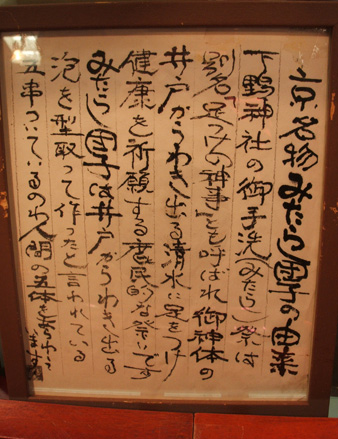 京名物みたらし団子の由来
下鴨神社の御手洗(みたらし)祭は
別名足つけの神事とも呼ばれ御神体の
井戸からわき出る清水に足をつけ
健康を祈願する庶民的な祭りです
みたらし団子は井戸からわき出る
泡を型取って作ったと言われている
五串ついているのは人間の五体を